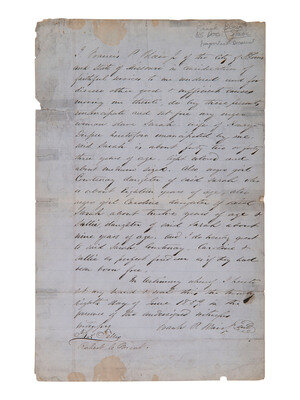 I Francis P Blair Jr of the City of St Louis
and State of Missouri in consideration of
faithful services to me rendered and for
divers other good & sufficient causes
moving me thereto do by these presents
emancipate and set free my negro
woman slave Sarah wife of
heretofore emancipated by me
said Sarah is about forty two or forty
three years of age light colored and
about medium sized. Also negro girl
Courtenay daughter of said Sarah who
is about eighteen years of age also
negro girl Caroline daughter of said
Sarah about twelve years of age &
Sallie daughter of said Sarah about
nine years of age. And I do hereby
said Sarah Courtenay Caroline &
Sallie as perfect freedom as if they had
been born free.
In testimony whereof I hereto
set my hand & seal this the twenty
eighth day of June 1859 in the
presence of the undersigned witnesses
Frank P. Blair Jr